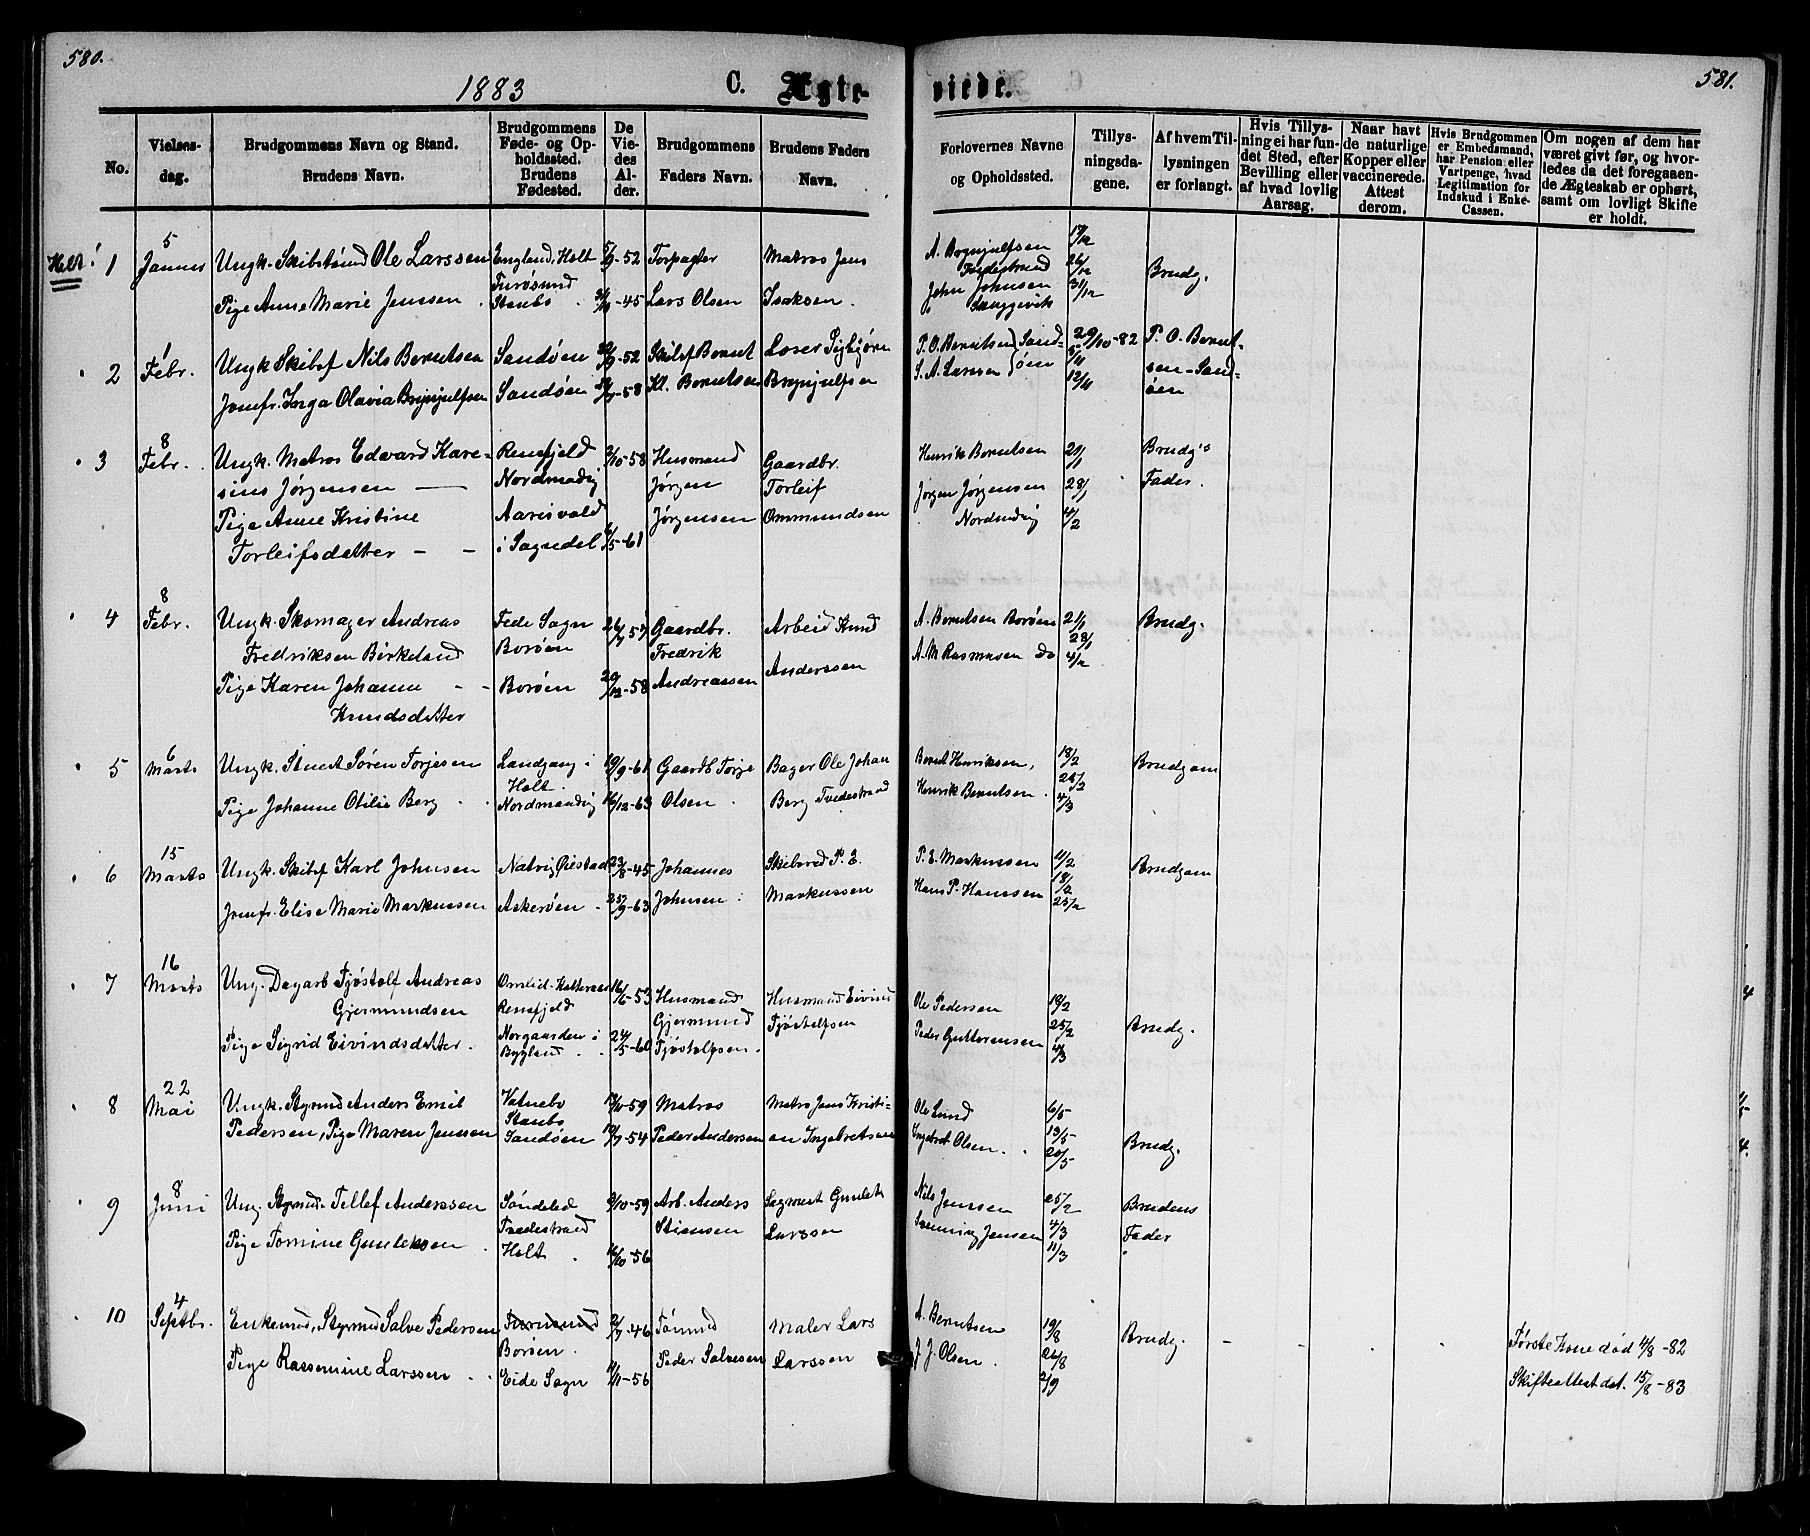 580.
1883
C. Ægte-
No.
Vielses-
dag.
Brudgommens Navn og Stand.
Brudens Navn.
Brudgommens
Føde- og Op-
holdssted.
Brudens
Fødested.
De
Vie-
des
Al-
der.
Brudgommens
Faders Navn.
Brudens Faders
Navn.
Holt! 1
5
Januar
Ungk. Ole Larssen
Pige Anne Marie Jenssen
England, Holt
Furøsund
Staubø
5/9-52
-45
Forpagter
Lars Olsen
Matros Jens
Isaksen.
2
1
Febr.
Ungk Skibsf Nils Berntsen
Jomfr. Inga Olavia Brynjulfsen
Sandøen
Sandøen
-52
-58
Skibsf Bernt
Kl. Berntsen
Loser Sigbjørn
Brynjulfsen
3
8
Febr.
Ungk. Matros Edvard Kare-
sius Jørgensen
Pige Anne Kristine
Torleifsdatter
Rensfjeld
Nordmandvig
Aarisvold
i Sagnedal
/10-58
6/5-61
Husmand
Jørgen
Jørgensen
Gaardbr.
Torleif
Ommundsen
4
8
Febr.
Ungk. Skomager Andreas
Fredriksen Birkeland
Pige Karen Johanne
Knudsdatter
Fede Sogn
Borøen
Borøen
-57
29/12-58
Gaardbr.
Fredrik
Andreassen
Arbeid Knud
Anderssen
5
6
Marts
Ungk. Stuert Søren Torjesen
Pige Johanne Otilie Berg
Landgang i
Holt.
Nordmandvig
19/9-61
16/12-63
Gaardb Torje
Olsen.
Bager Ole Johan
Berg Tvedestrand
6
15
Marts
Ungk. Skibsf Karl Johnsen
Jomfr. Elise Marie Markussen
Natvig Øiestad
Askerøen
23/8-45
25/9-63
Johannes
Johnsen
Skibsred P. E.
Markussen
7
16
Marts
Ung. Dagarb Tjøstolf Andreas
Gjermundsen
Pige Sigrid Eivindsdatter.
Rensfjeld
Norgaarden i
Bygland
16/6-53
24/5-60
Husmand
Gjermund
Tjøstolfsen.
Husmand Eivind
Tjøstolfsen
8
22
Mai
Ungk. Styrmd Anders Emil
Pedersen, Pige Maren Jenssen
Vatnebo
Staubø
Sandøen
/10-59
/7-54
Matros
Peder Andersen
Matros Jens Kristi-
an Ingebretsen
9
8
Juni
Ung. Styrmd. Tellef Anderssen
Pige Tomine Gunleksen
Søndeled
Tvedestrand
Holt
9/10-59
16/10-56
Arb. Anders
Stiansen
Sagmest Gunlek
Larssen
10
4
Septbr.
Enkemnd, Styrmnd Salve Pedersen
Pige Rassemine Larssen
Borøen.
Eide Sogn
2/7-46
11/11-56
Tømmd
Peder Salvesen
Maler Lars
Larssen
581.
viede.
Forlovernes Navne
og Opholdssted.
Tillys-
ningsda-
gene.
Af hvem Til-
lysningen
er forlangt.
Hvis Tillys-
ning ei har fun-
det Sted, efter
Bevilling eller
af hvad lovlig
Aarsag.
Naar havt
de naturlige
Kopper eller
vaccinerede.
Attest
derom.
Hvis Brudgommen
er Embedsmand,
har Pension eller
Vartpenge, hvad
Legitimation for
Indskud i Enke-
Cassen.
Om nogen af dem har
været givt før, og hvor-
ledes da det foregaaen-
de Ægteskab er ophørt,
samt om lovligt Skifte
er holdt.
A. Brynjulfsen
Tvedestrand
John Johnsen
17/12
26/12
31/12
Brudg.
P. O. Berntsen } Sand-
S. A. Larsen } øen
29/10-82
5/11
12/11
P. O. Bernt-
sen-Sand-
øen
Henrik Berntsen
Jørgen Jørgensen
Nordmdvig
21/1
28/1
4/2
Brudg's
Fader.
A. Berntsen Borøen
A. M Rasmusen do
21/1
28/1
4/2
Brudg.
Bernt Henriksen,
Henrik Berntsen.
18/2
25/2
4/3
Brudgom
P. E. Markussen
Hans P. Hanssen
11/2
18/2
25/2
Brudgom
Ole Pedersen
Peder Guttormsen
19/2
25/2
4/3
Brudg.
Ole Lund
Ingebret Olsen.
6/5
13/5
20/5
Brudg.
Nils Jenssen
Svenning Jensen
25/2
4/3
11/3
Brudens
Fader
A. Berntsen
J. J. Olsen.
19/8
26/8
2/9
Brudg.
Første Kone død 4/8-82
Skifteattest dat. 15/8-83